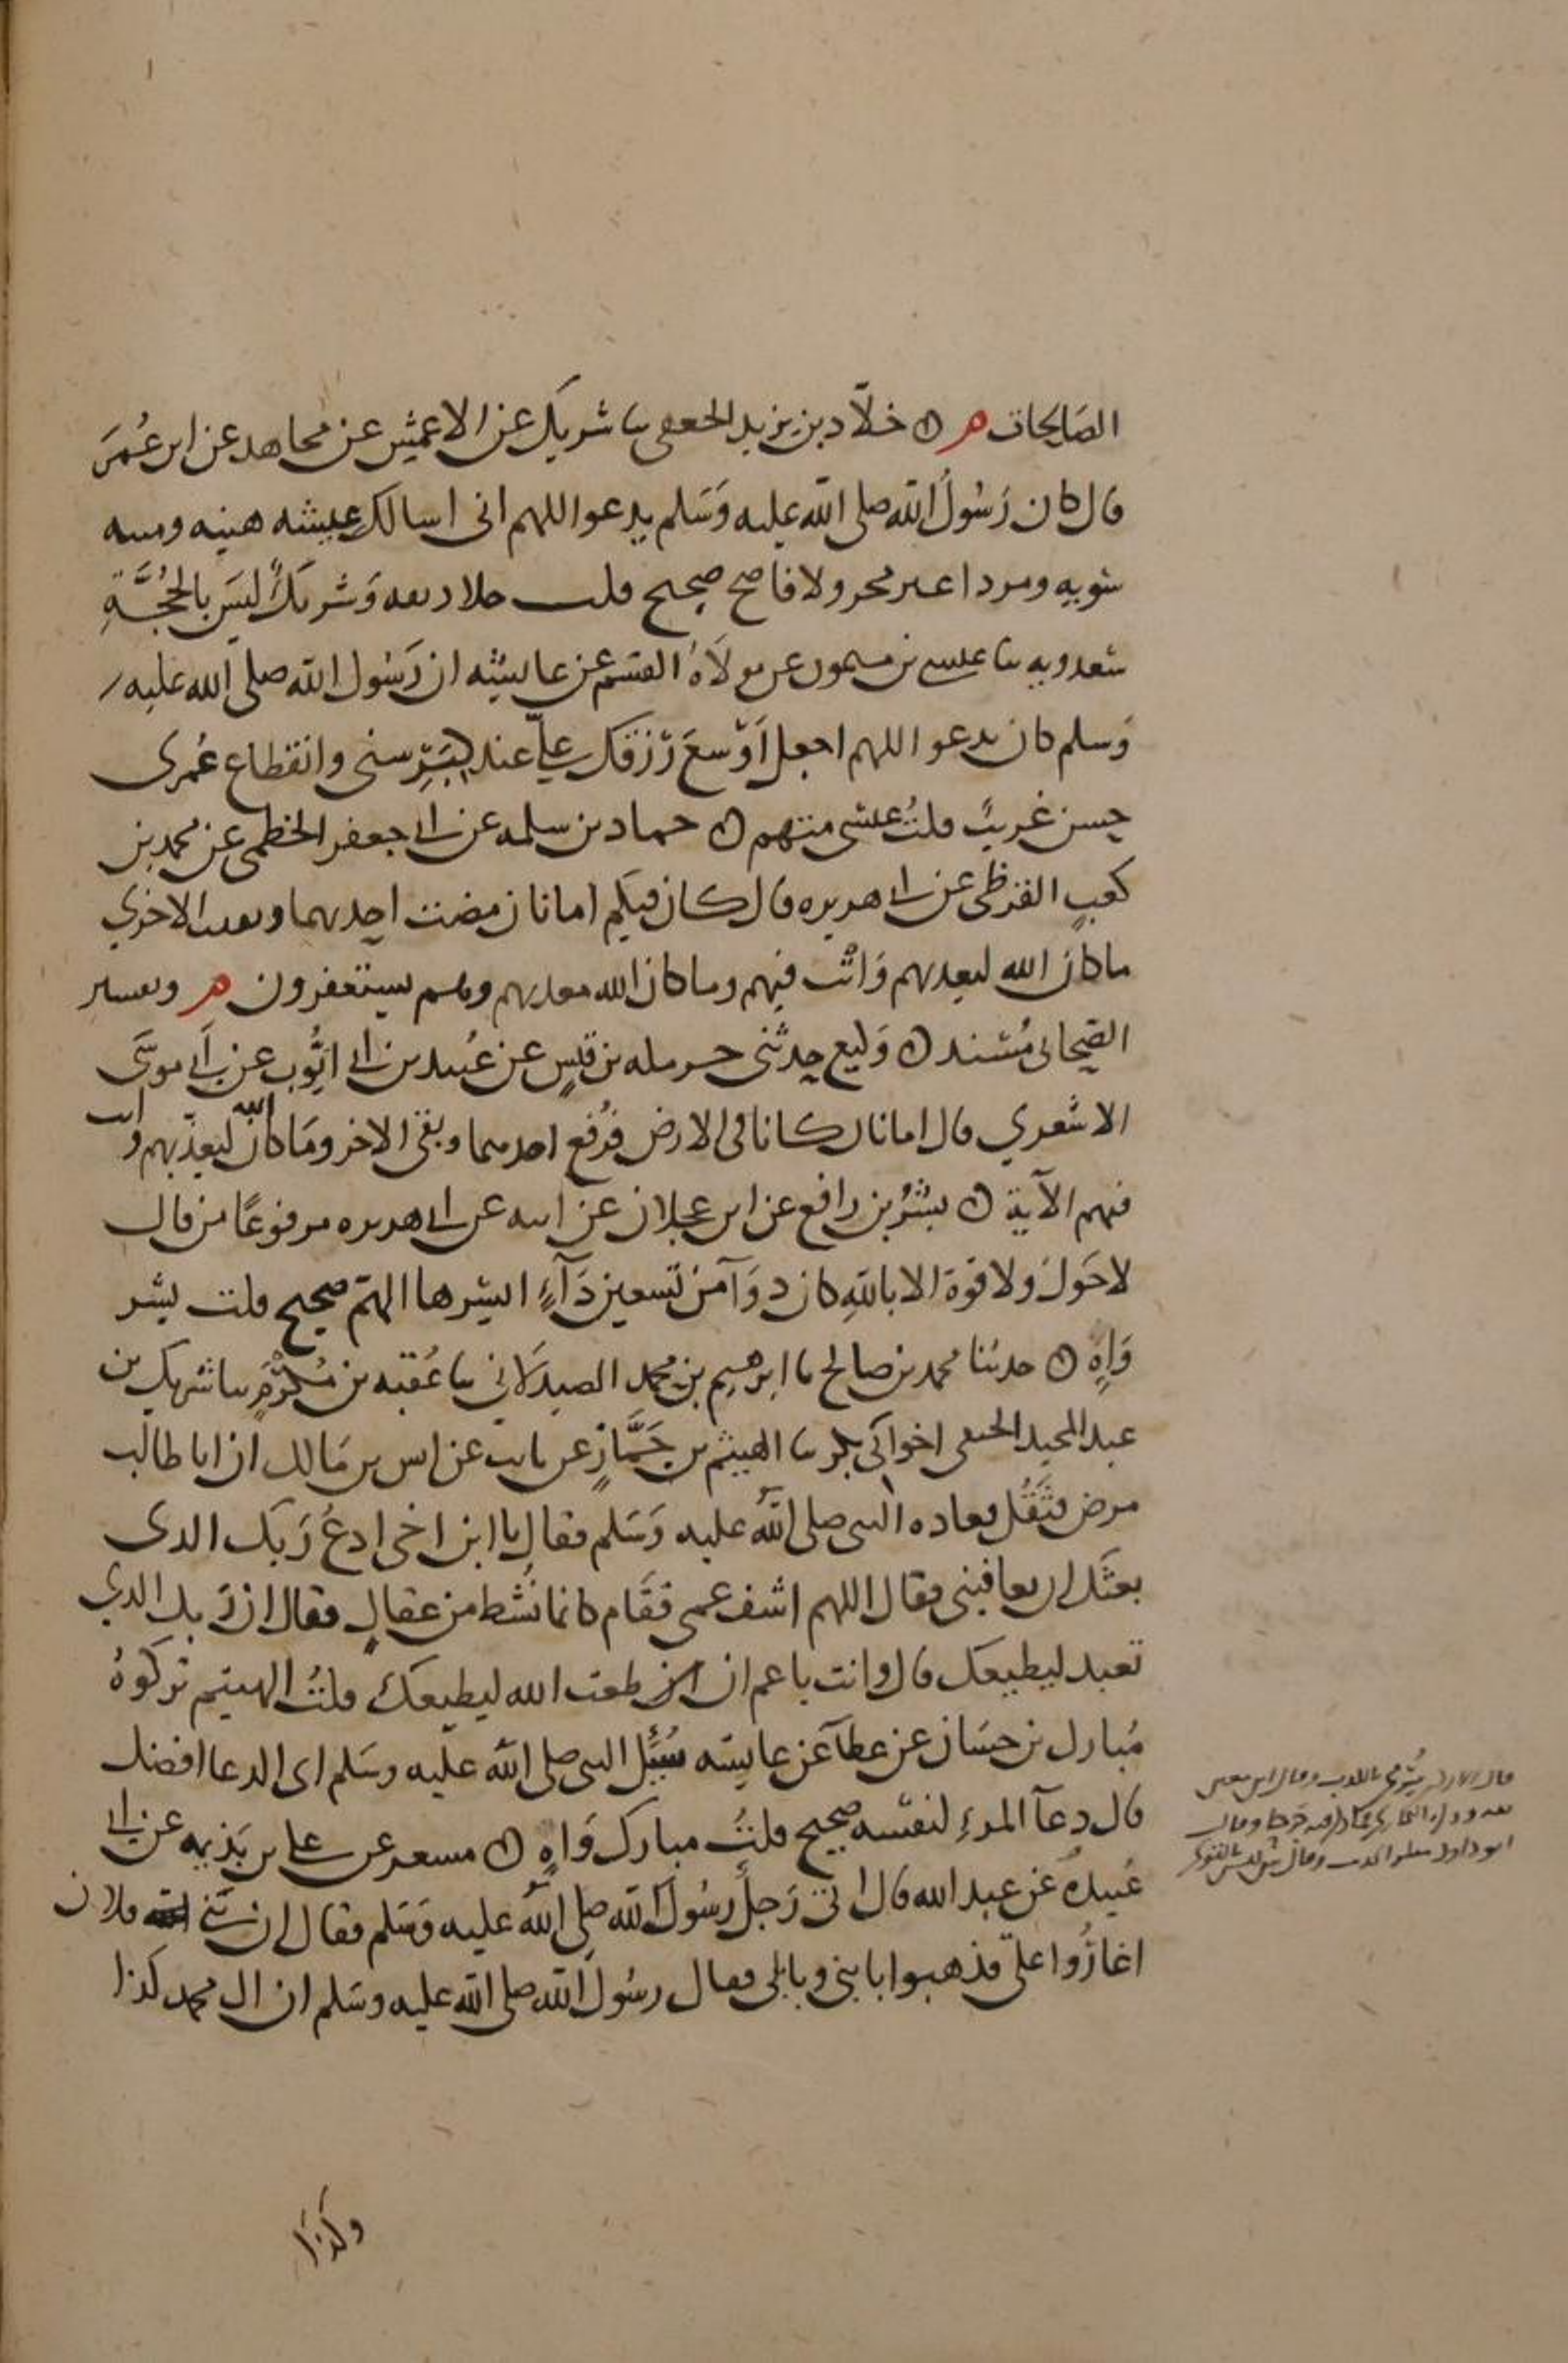 الصالحات م ن خلاد بن يزيد الجعفي ثنا شريك عن الاعمش عن مجاهد عن ابن عُمَر
قال كان رَسُولُ الله صلى الله عليه وَسَلم يدعوا اللهم اني اسالك عيشه هنيه وميته
سَويه ومردا غير مخز ولا فاضح صحيح قلت خلاد ثقه وَشريكٌ ليسَ بالحُجَّةِ
سعدويه ثنا عيسى بن ميمون عن مولاهُ القسم عن عايشه ان رَسُول الله صلى الله عليه
وَسلم كان يدعو اللهم اجعل اَوْسعَ رْزقك عليّ عند كِبَرِ سني وانقطاع عُمري
حسن غريبٌ قلتُ عيسى متهم ن حماد بن سلمه عن ابي جعفر الخطمي عن محمد بن
كعبٍ القرظي عن ابي هريره قال كان فيكم امانان مضت احديهما وبقيت الاخري
ما كان الله ليعذبهم وَانت فيهم وما كان الله معذبهم وهم يستغفرون م وتفسير
الصحابي مُسْند ن وَكيع حدثني حرمله بن قيسٍ عن عُبيد بن ابي ايُّوب عن اَبي موسَى
الاشعري قال امانان كانا في الارض فرُفع احدهما وبقي الاخر وَمَا كان الله ليعذّبهم وانت
فيهم الآية ن بشْرُ بن رافع عن ابن عجلان عن ابيه عن ابي هريره مرفوعًا من قال
لا حَولَ ولا قوة الا باللهِ كان دوَآ من تسعين دَآءٍ ايسرها الهَمّ صحيح قلت بشر
وَاهٍ ن حدثنا محمد بن صالح ثنا ابرهيم بن محمد الصيدلاني ثنا عُقبه بن مُكْرَمٍ ثنا شريك بن
عبد المجيد الحنفي اخو ابي بكر ثنا الهيثم بن جَمَّازٍ عن ثابت عن انس بن مَالك ان ابا طالب
مرض فثَقُل فعاده النبي صلى الله عليه وَسَلم فقال يا ابن اخي ادعُ رَبك الذي
بعثَك ان يعافيني فقال اللهم اشف عمي فقَام كانما نُشط من عقالٍ فقال ان رَبك الذي
تعبد ليطيعك قال وانت يا عم ان اطعت الله ليطيعك قلتُ الهيثم تركوهُ
مُبارك بن حسَان عن عطآ عن عايشه سُئِل النبي صلى الله عليه وسَلم اي الدعا افضل
قال دعآ المرءِ لنفسه صحيح قلتُ مبارك وَاهٍ ن مسعر عن علي بن بَذيمه عن ابي
عُبيدهَ عن عبد الله قال اتى رَجلٌ رسُولَ الله صلى الله عليه وَسَلم فقال ان بَني فلان
اغارُوا عليّ فذهبوا بابني وبابلي فقال رسُولُ الله صلى الله عليه وسَلم ان ال محمد كذا
وكذا
قال الازدي يُرْمى بالكذب وقال ابن معين
ثقه
ابو داود منكر الحديث وقال س ليس بالقوي